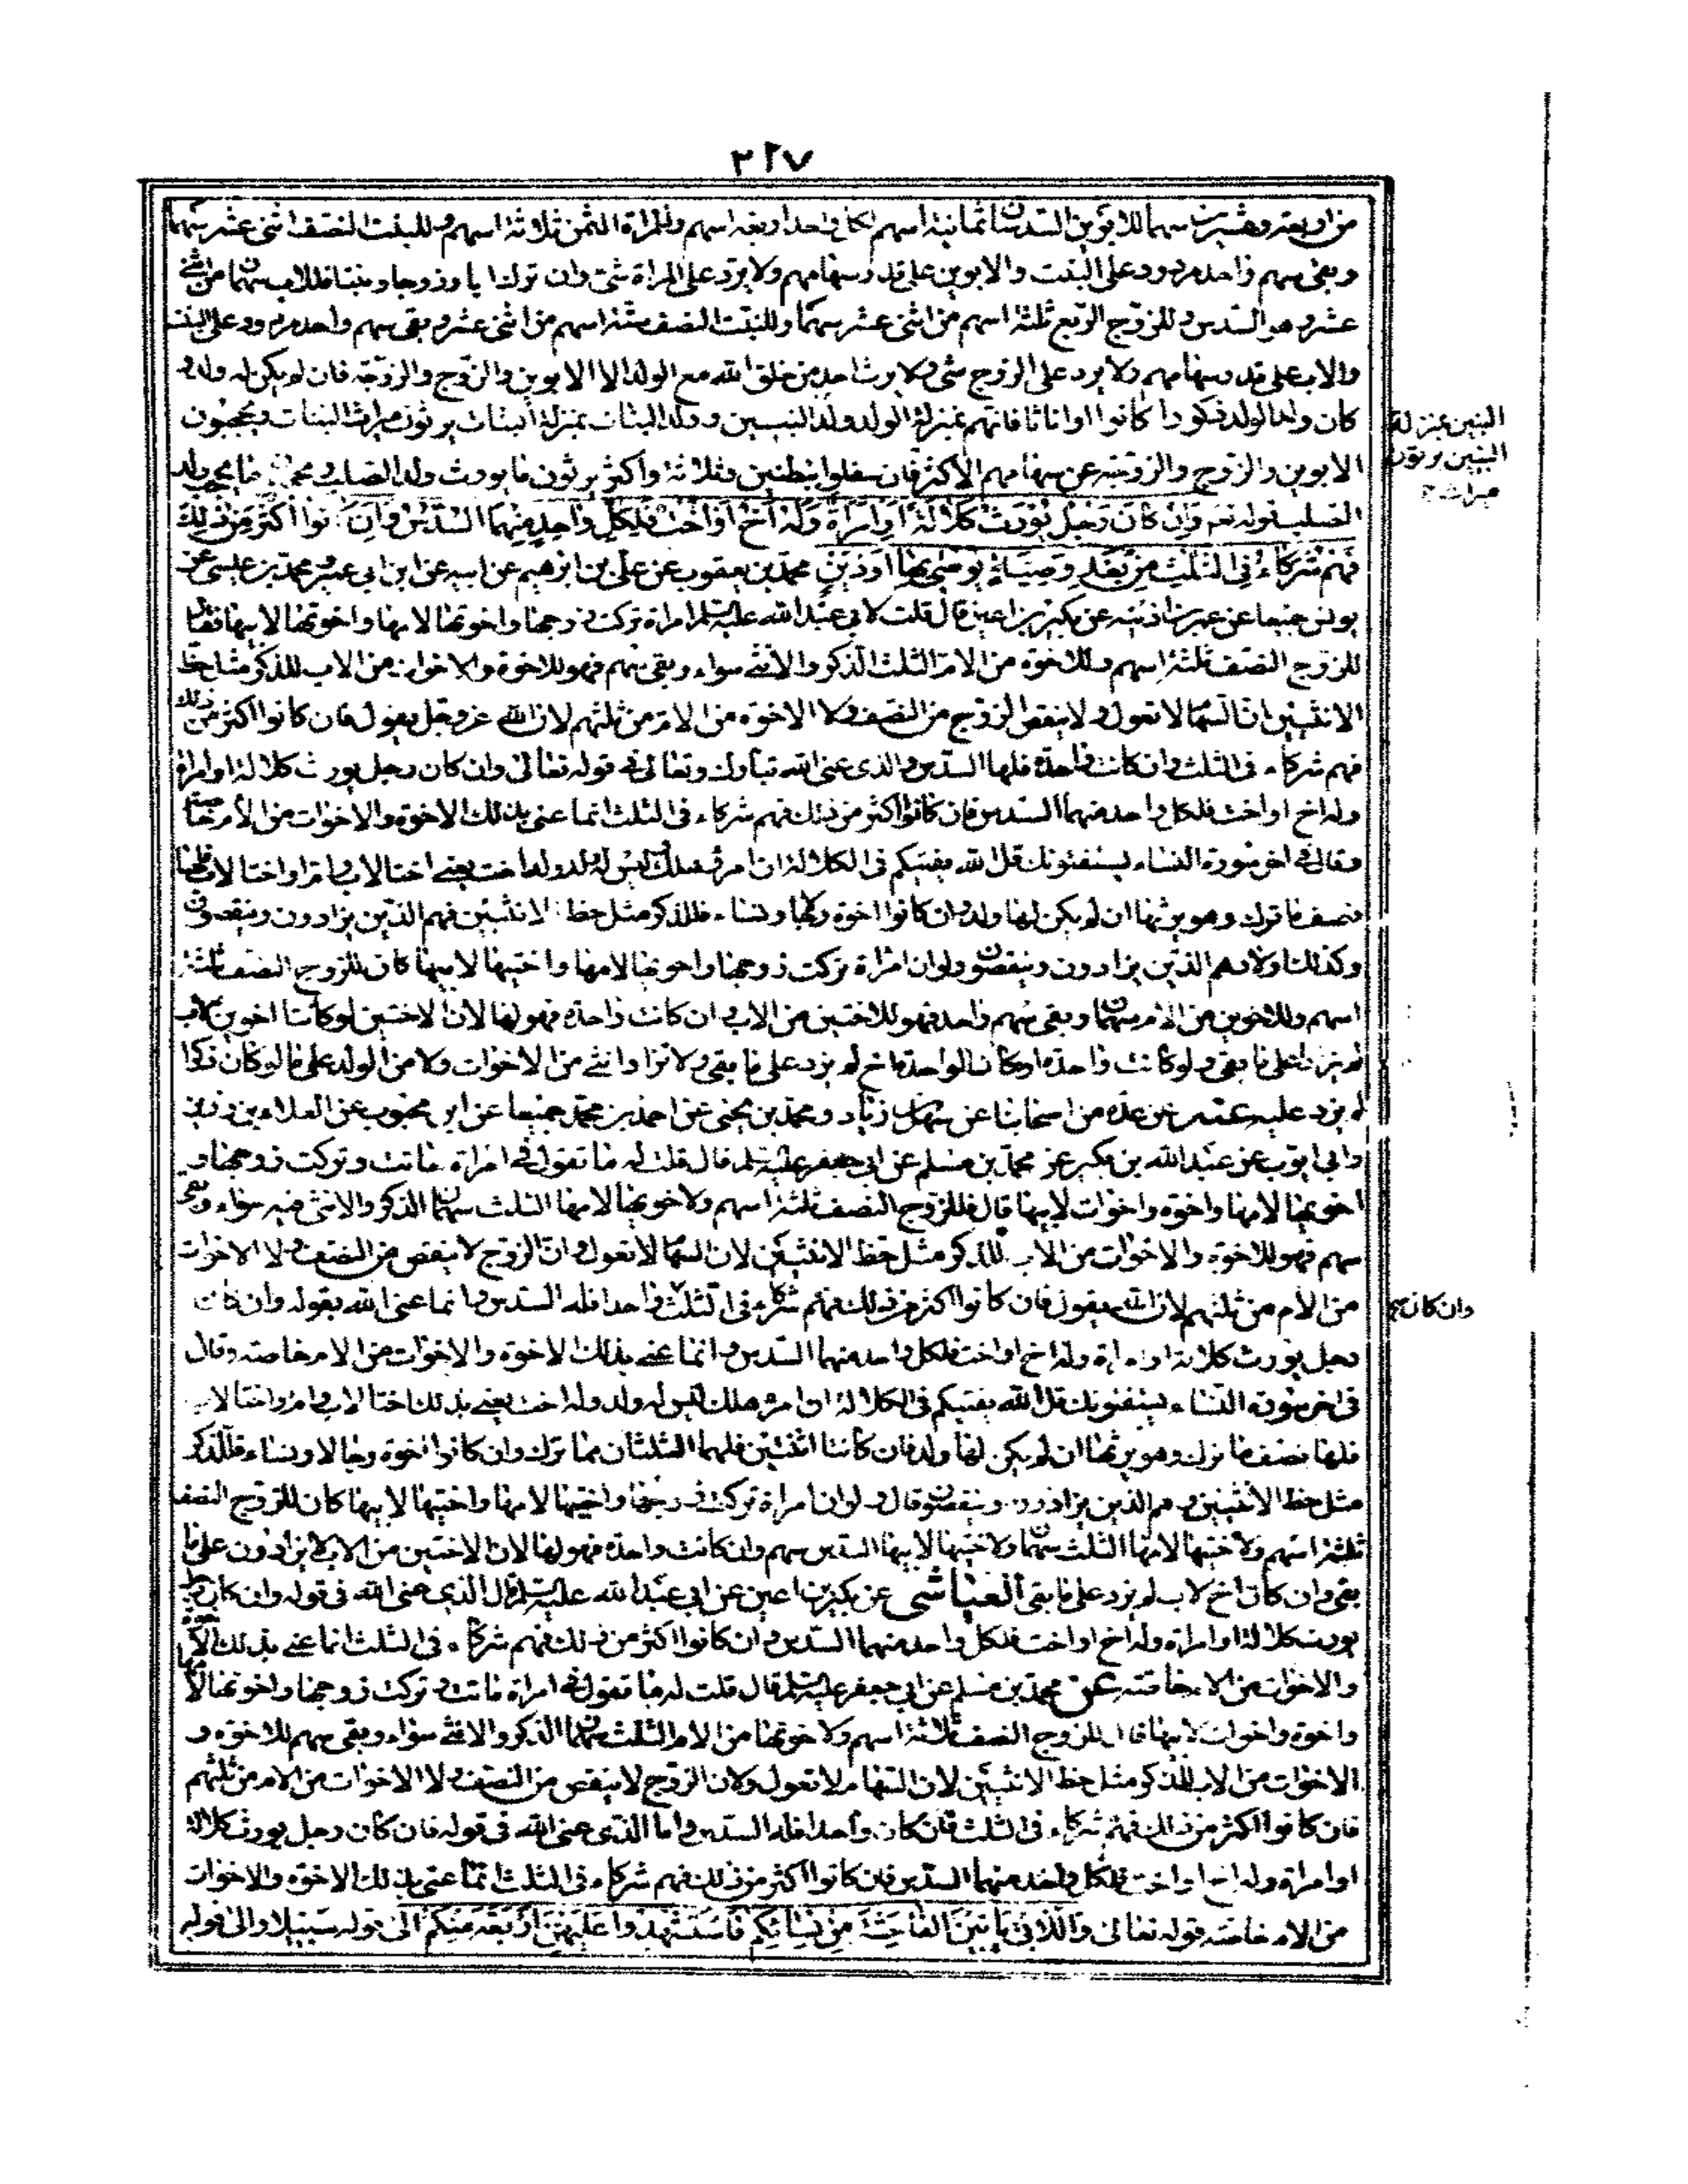 ٢١٧
من اربعة وعشرين سهما للابوين السدسان ثمانية اسهم لكل واحد اربعة اسهم وللمراة الثمن ثلاثة اسهم وللبنت النصف اثنى عشر سهما
وبقى سهم واحد مردود على البنت والابوين على قدر سهامهم ولا يرد على المراة شئ وان ترك ابا وزوجا وبنتا فللاب سهمان من اثنى
عشر وهو السدس وللزوج الربع ثلثة اسهم من اثنى عشر سهما وللبنت النصف ستة اسهم من اثنى عشر وبقى سهم واحد مردود على البنت
والاب على قدر سهامهم ولا يرد على الزوج شئ ولا يرث احد من خلق الله مع الولد الا الابوين والزوج والزوجة فان لم يكن له ولد و
كان ولد الولد ذكورا كانوا او اناثا فانهم بمنزلة الولد ولد البنين وولد البنات بمنزلة البنات يرثون ميراث البنات ويحجبون
البنين بمنزلة
البنين يرثون
ميراث
الابوين والزوج والزوجة عن سهامهم الاكثر فان سفلوا ببطنين وثلاثة واكثر يرثون ما يورث ولد الصلب ويحجبون ما يحجب ولد
الصلب قوله نعم وَاِن كَانَ رَجُلٌ يُورَثُ كَلَالَةً اَوِ امْرَأَةٌ وَلَهُ اَخٌ اَوْ اُخْتٌ فَلِكُلِّ وَاحِدٍ مِنْهُمَا السُّدُسُ فَاِنْ كَانُوا اَكْثَرَ مِنْ ذٰلِكَ
فَهُمْ شُرَكَاءُ فِى الثُّلُثِ مِنْ بَعْدِ وَصِيَّةٍ يُوصٰى بِهَا اَوْ دَيْنٍ محمد بن يعقوب عن على بن ابرهيم عن ابيه عن ابن ابى عمير ومحمد بن عيسى عن
يونس جميعا عن عمر بن اذينه عن بكير بن اعين قال قلت لابى عبد الله عليه السلم امراة تركت زوجها واخوتها لامها واخوتها لابيها فقال
للزوج النصف ثلثة اسهم وللاخوة من الام الثلث الذكر والانثى سواء وبقى سهم فهو للاخوة والاخوات من الاب للذكر مثل حظ
الانثيين ان السهام لا تعول ولا ينقص الزوج من النصف ولا الاخوة من الام من ثلثهم لان الله عز وجل يقول فان كانوا اكثر من ذلك
فهم شركاء فى الثلث وان كانت واحدة فلها السدس والذى عنى الله تبارك وتعالى فى قوله تعالى وان كان رجل يورث كلالة او امراة
وله اخ او اخت فلكل واحد منهما السدس فان كانوا اكثر من ذلك فهم شركاء فى الثلث انما عنى بذلك الاخوة والاخوات من الام خاصة
وقال فى اخر سورة النساء يستفتونك قل الله يفتيكم فى الكلالة ان امرؤ هلك ليس له ولد وله اخت يعنى اختا لاب وام او اختا لاب فلها
نصف ما ترك وهو يرثها ان لم يكن لها ولد وان كانوا اخوة رجالا ونساء فللذكر مثل حظ الانثيين فهم الذين يزادون وينقصون
وكذلك اولادهم الذين يزادون وينقصون ولو ان امراة تركت زوجها واخوتها لامها واختيها لابيها كان للزوج النصف ثلثة
اسهم وللاخوين من الام سهمان وبقى سهم واحد فهو للاختين من الاب وان كانت واحدة فهو لها لان الاختين لو كانتا اخوين لاب
لم يزادا على ما بقى ولو كانت واحدة او كان الواحدة اخ لم يزد على ما بقى ولا تزاد انثى من الاخوات ولا من الولد على ما لو كان ذكرا
لم يزد عليه عنه عن عدة من اصحابنا عن سهل بن زياد ومحمد بن يحيى عن احمد بن محمد جميعا عن ابن محبوب عن العلاء بن رزين
وابى ايوب عن عبد الله بن بكير عن محمد بن مسلم عن ابى جعفر عليه السلم قال قلت له ما تقول فى امراة ماتت وتركت زوجها و
اخوتها لامها واخوة واخوات لابيها قال للزوج النصف ثلثة اسهم ولاخوتها لامها الثلث سهمان الذكر والانثى فيه سواء وبقى
سهم فهو للاخوة والاخوات من الاب للذكر مثل حظ الانثيين لان السهام لا تعول وان الزوج لا ينقص من النصف ولا الاخوات
من الام من ثلثهم لان الله يقول فان كانوا اكثر من ذلك فهم شركاء فى الثلث واحدا فله السدس وانما عنى الله بقوله وان كان
وان كان
رجل يورث كلالة او امراة وله اخ او اخت فلكل واحد منهما السدس وانما عنى بذلك الاخوة والاخوات من الام خاصة وقال
فى اخر سورة النساء يستفتونك قل الله يفتيكم فى الكلالة ان امرؤ هلك ليس له ولد وله اخت يعنى بذلك اختا لاب وام واختا لاب
فلها نصف ما ترك وهو يرثها ان لم يكن لها ولد فان كانتا اثنتين فلهما الثلثان مما ترك وان كانوا اخوة رجالا ونساء فللذكر
مثل حظ الانثيين وهم الذين يزادون وينقصون قال ولو ان امراة تركت زوجها واختيها لامها واختيها لابيها كان للزوج النصف
ثلثة اسهم ولاختيها لامها الثلث سهمان ولاختيها لابيها السدس سهم وان كانت واحدة فهو لها لان الاختين من الاب لا يزادون على ما
بقى وان كان اخ لاب لم يزد على ما بقى العياشى عن بكير بن اعين عن ابى عبد الله عليه السلم قال الذى عنى الله فى قوله وان كان رجل
يورث كلالة او امراة وله اخ او اخت فلكل واحد منهما السدس وان كانوا اكثر من ذلك فهم شركاء فى الثلث انما عنى بذلك الاخوة
والاخوات من الام خاصة عن محمد بن مسلم عن ابى جعفر عليه السلم قال قلت له ما تقول فى امراة ماتت وتركت زوجها واخوتها لامها
واخوة واخوات لابيها قال للزوج النصف ثلاثة اسهم ولاخوتها من الام الثلث سهمان الذكر والانثى سواء وبقى سهم للاخوة و
الاخوات من الاب للذكر مثل حظ الانثيين لان السهام لا تعول ولان الزوج لا ينقص من النصف ولا الاخوات من الام من ثلثهم
فان كانوا اكثر من ذلك فهم شركاء فى الثلث فان كان واحدا فله السدس واما الذى عنى الله فى قوله فان كان رجل يورث كلالة
او امراة وله اخ او اخت فلكل واحد منهما السدس فان كانوا اكثر من ذلك فهم شركاء فى الثلث انما عنى بذلك الاخوة والاخوات
من الام خاصة قوله تعالى وَاللَّاتِى يَأْتِينَ الْفَاحِشَةَ مِنْ نِسَائِكُمْ فَاسْتَشْهِدُوا عَلَيْهِنَّ اَرْبَعَةً مِنْكُمْ الى قوله سَبِيلا والى قوله